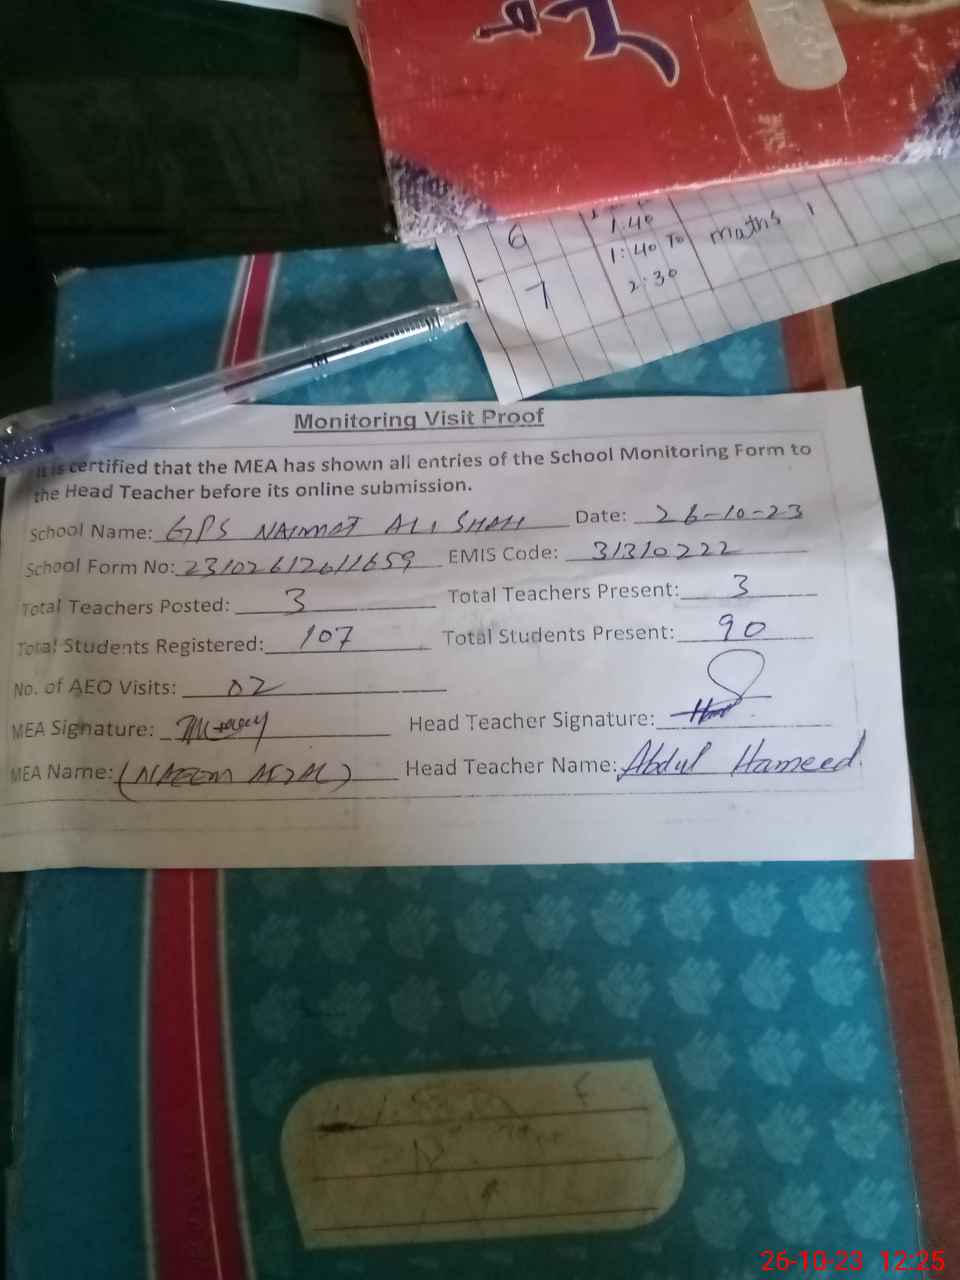 6
1:40
1:40 To
2:30
maths
7
Monitoring Visit Proof
It is certified that the MEA has shown all entries of the School Monitoring Form to
the Head Teacher before its online submission.
School Name: GPS NAIMAT ALI SHAH Date: 26-10-23
School Form No: 23102612611659 EMIS Code: 31310222
Total Teachers Posted: 3 Total Teachers Present: 3
Total Students Registered: 107 Total Students Present: 90
No. of AEO Visits: 02
MEA Signature: Head Teacher Signature:
MEA Name: (NAEEM AFZAL) Head Teacher Name: Abdul Hameed.
26-10-23 12:25